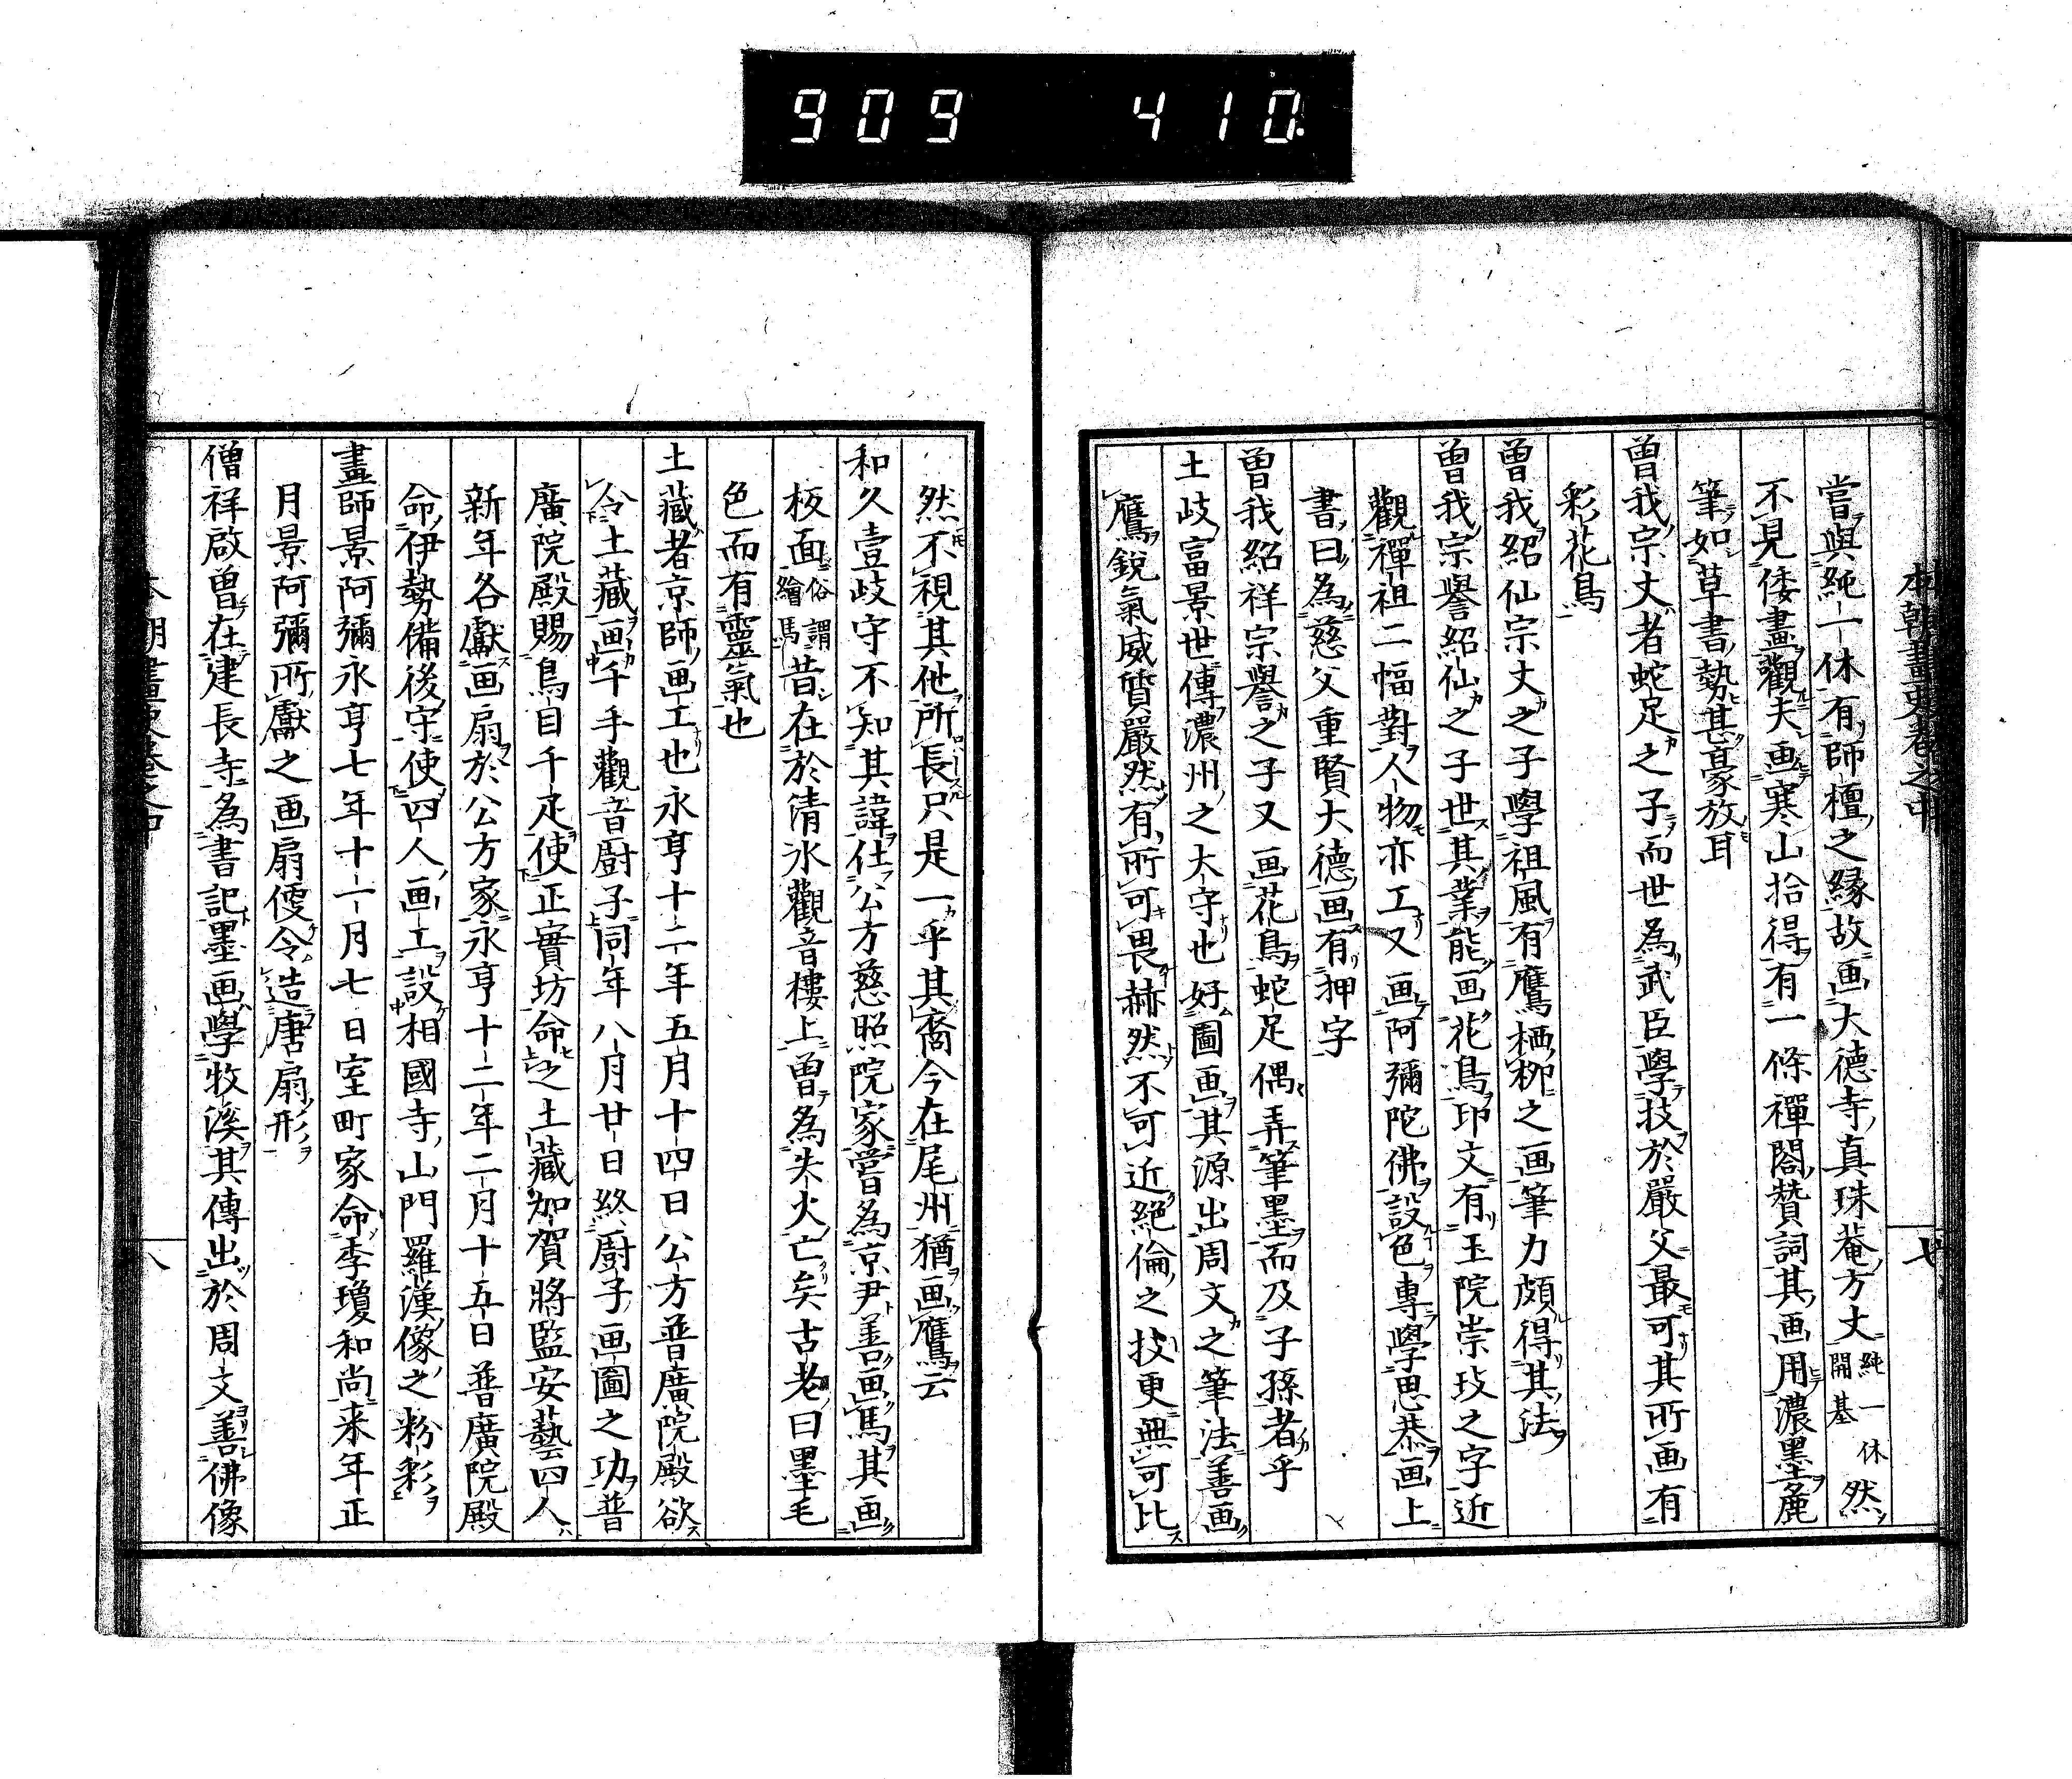 909 410
本朝畫史卷之中 七
嘗與純一休有師檀之縁故画大德寺真珠菴方丈純一休開基然
不見倭畫觀夫画寒山拾得有一條禪閤贊詞其画用濃墨麁
筆如草書勢甚豪放耳
曽我宗丈者蛇足之子而世為武臣學技於嚴父最可其所画有
彩花鳥
曽我紹仙宗丈之子學祖風有鷹栖柳之画筆力頗得其法
曽我宗譽紹仙之子世其業能画花鳥印文有玉院崇玟之字近
觀禪祖二幅對人物亦工又画阿彌陀佛設色專學思恭画上
書曰為慈父重賢大德画有押字
曽我紹祥宗譽之子又画花鳥蛇足偶弄筆墨而及子孫者乎
土岐富景世傳濃州之太守也好圖画其源出周文之筆法善画
鷹鋭氣威質嚴然有所可畏赫然不可近絕倫之技更無可比
然不視其他所長只是一乎其裔今在尾州猶画鷹云
和久壹岐守不知其諱仕公方慈照院家嘗為京尹善画馬其画
板面俗謂繪馬昔在於清水觀音樓上曽為失火亡矣古老曰墨毛
色而有靈氣也
土藏者京師画工也永亨十二年五月十四日公方普廣院殿欲
令土藏画千手觀音廚子同年八月廿日終廚子画圖之功普
廣院殿賜鳥目千疋使正實坊命之土藏加賀將監安藝四人
新年各獻画扇於公方家永亨十二年二月十五日普廣院殿
命伊勢備後守使四人画工設相國寺山門羅漢像之粉彩
畫師景阿彌永亨七年十一月七日室町家命李瓊和尚来年正
月景阿彌所獻之画扇侵令造唐扇形
僧祥啟曽在建長寺為書記墨画學牧溪其傳出於周文善佛像
本朝畫史卷之中 八